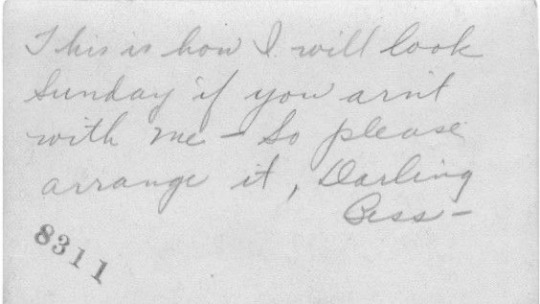 This is how I will look
Sunday if you arn't
with me - So please
arrange it, Darling
Bess -
8311